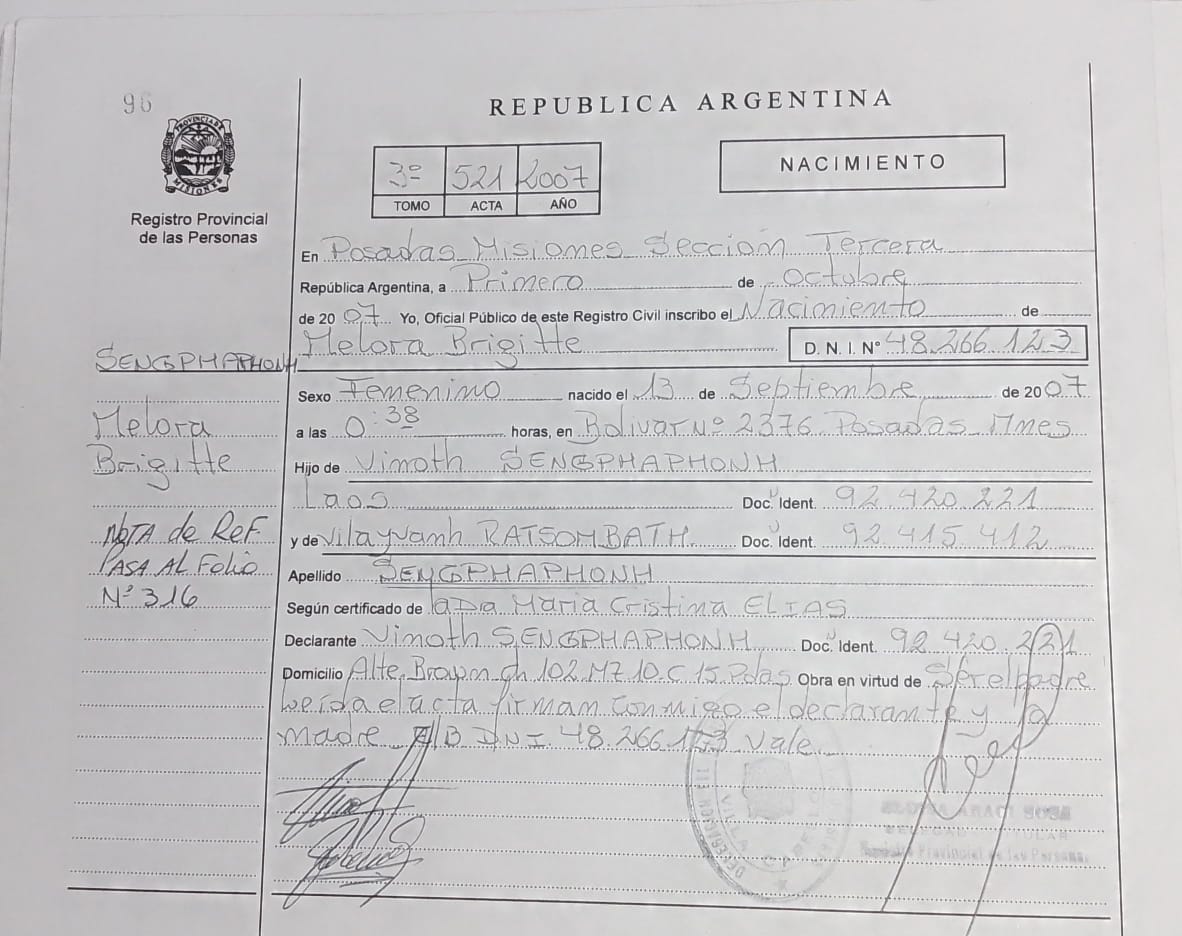 96
REPUBLICA ARGENTINA
PROVINCIA DE
MISIONES
Registro Provincial
de las Personas
3º 521 2007
TOMO ACTA AÑO
NACIMIENTO
En Posadas Misiones Seccion Tercera
República Argentina, a Primero de Octubre
de 2007 Yo, Oficial Público de este Registro Civil inscribo el Nacimiento de
Melora Brigitte D. N. I. Nº 48.266.123
SENGPHAPHONH
Sexo Femenino nacido el 13 de Septiembre de 2007
a las 0:38 horas, en Bolivar Nº 2376 Posadas Mnes
Melora
Brigitte
Hijo de Vimoth SENGPHAPHONH
Laos Doc. Ident. 92.420.221
NOTA de REF.
y de Vilayvanh RATSOMBATH Doc. Ident. 92.415.412
PASA AL Folio
Apellido SENGPHAPHONH
Nº 316
Según certificado de la Dra Maria Cristina ELIAS
Declarante Vimoth SENGPHAPHONH Doc. Ident. 92.420.221
Domicilio Alte. Brown ch 102 MZ 10 C 15 Pdas Obra en virtud de Ser el padre
Leida el acta firman conmigo el declarante y la
madre DNI. 48.266.123 Vale
DELEGACION III
VILLA CABELLO
SOSA
Registro Provincial de las Personas